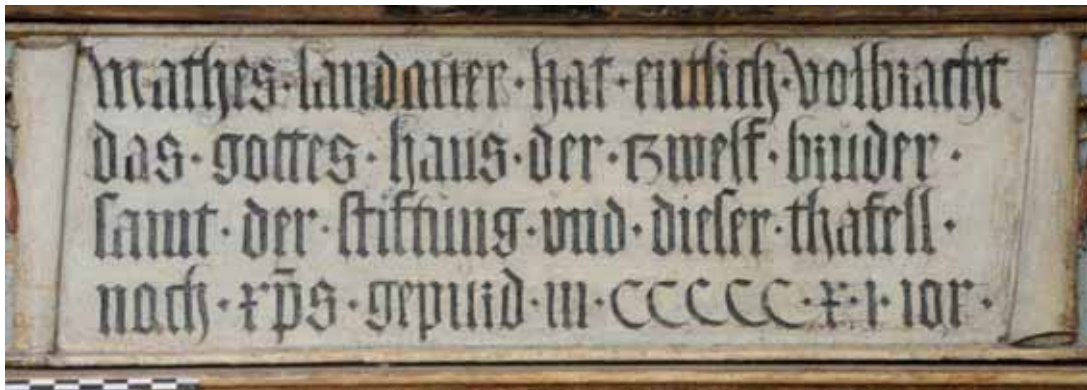 mathes · landauer · hat · entlich · volbracht
das · gottes · haus · der · tzwelf · bruder ·
samt · der · stiftung · vnd · dieser · thafell ·
noch · xp̄s · gepurd · m · CCCCC · x · i · ior ·